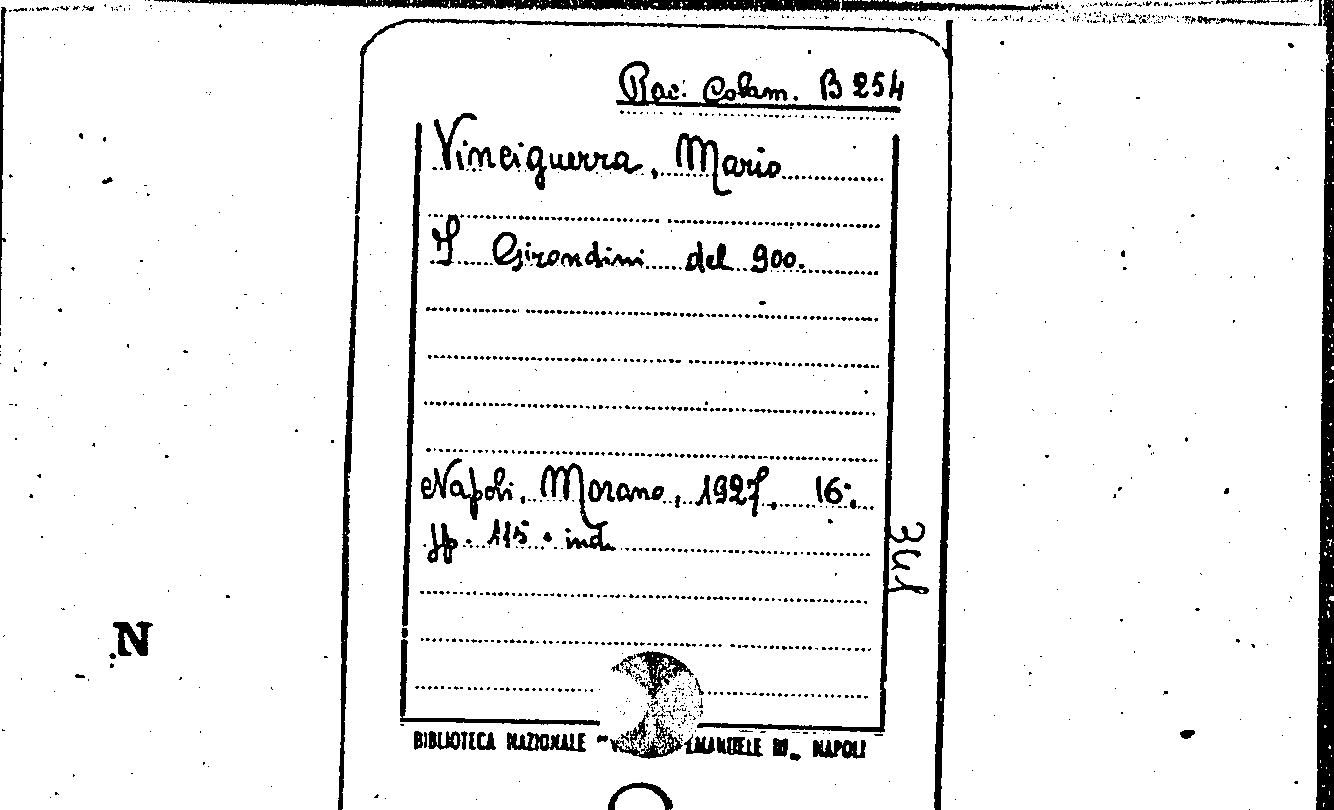 Rac. Colam. B 254
Vinciguerra, Mario
I Girondini del 900.
Napoli, Morano, 1927, 16°,
pp. 115 + ind.
N
BIBLIOTECA NAZIONALE "V EMANUELE III„ NAPOLI